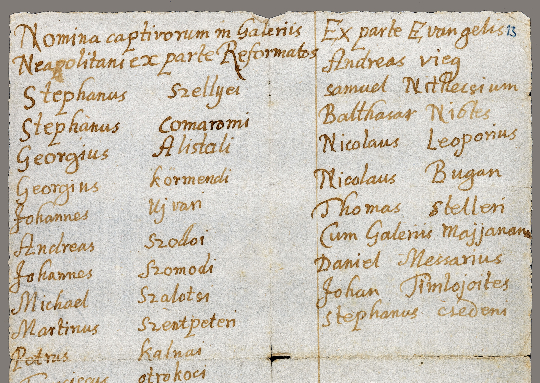 Nomina captivorum in Galeriis
Neapolitani ex parte Reformatos
Stephanus Szellyei
Stephanus Comaromi
Georgius Alistali
Georgius kormendi
Johannes Uj vari
Andreas Szodoi
Johannes Szomodi
Michael Szalotsi
Martinus Szentpeteri
Petrus kalnai
otrokoci
Ex parte Evangelis 13
Andreas vieg
Samuel
Balthasar
Nicolaus Leoporius
Nicolaus Bugan
Thomas Stelleri
Cum Galeriis
Daniel Messarius
Johan
Stephanus